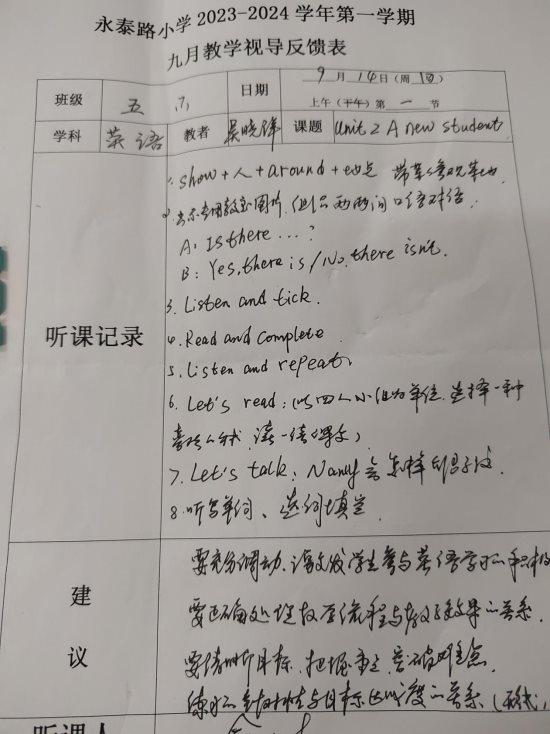 永泰路小学 2023-2024 学年第一学期
九月教学视导反馈表
班级 五 日期 9 月 14 日(周 四)
上午(下午)第 一 节
学科 英语 教者 课题 Unit 2 A new student
听课记录
1. show + 人 + around + 地点 带某人参观某地
2. 出示专用教室图片, 两两问 口语对话
A: Is there ...?
B: Yes, there is / No, there isn't.
3. Listen and tick.
4. Read and complete
5. Listen and repeat
6. Let's read: 以四人小组为单位, 选择一种
喜欢的方式 读一读课文
7. Let's talk: Nancy 是怎样的孩子
8. 听写单词、选词填空
建议
要充分调动、激发学生参与英语学习的积极
要正确处理 流程与教学效果的关系
要 目标, 把握重点, 突破难点
练习的针对性与目标达成度的关系
听课人